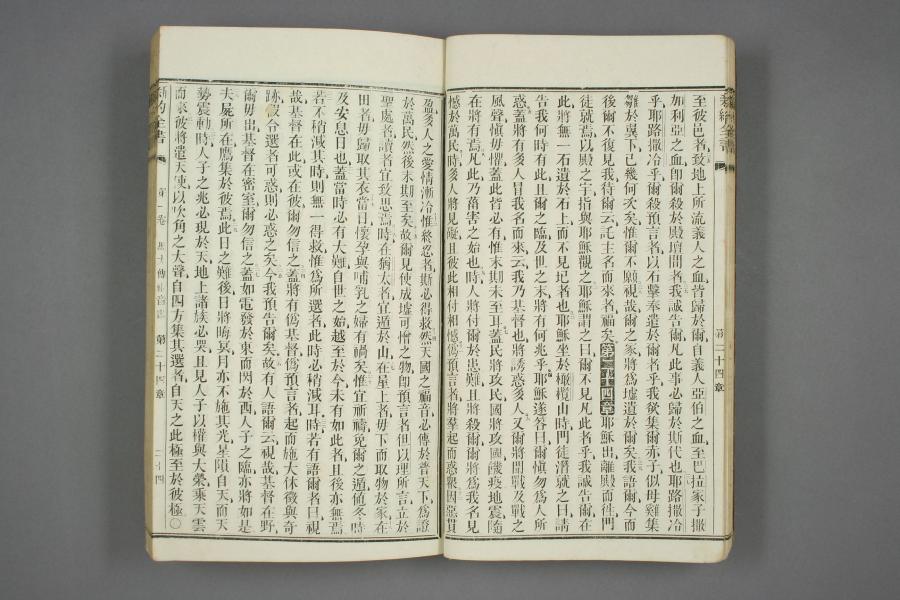 新約全書
第二十四章
至彼邑者致地上所流義人之血皆歸於爾自義人亞伯之血至巴拉家子撒
加利亞之血卽爾殺於殿壇間者我誠告爾凡此事必歸於斯代也耶路撒冷
乎耶路撒冷乎爾殺預言者以石擊奉遣於爾者乎我欲集爾赤子似母雞集
雛於翼下已幾何次矣惟爾不願視哉爾之家將爲墟遺於爾矣我語爾今而
後爾不復見我待爾云託主名而來者福矣第二十四章耶穌出離殿而徃門
徒就焉以殿之宇指與耶穌觀之耶穌謂之曰爾不見凡此者乎我誠告爾在
此將無一石遺於石上而不見圮者也耶穌坐於橄欖山時門徒潛就之曰請
告我何時有此且爾之臨及世之末將有何兆乎耶穌遂答曰爾愼勿爲人所
惑蓋將有多人冒我名而來云我乃基督也將誘惑多人又爾將聞戰及戰之
風聲愼毋懼蓋此皆必有惟末期未至耳蓋民將攻民國將攻國饑疫地震隨
在將有焉凡此乃菑害之始也時人將付爾於患難且將殺爾爾將爲我名見
憾於萬民時多人將見礙且彼此相付相憾僞預言者將羣起而惑衆因惡貫
盈多人之愛情漸冷惟終忍者斯必得救然天國之福音必傳於普天下爲證
於萬民然後末期至矣故爾見使成墟可憎之物卽預言者但以理所言立於
聖處者讀者宜致思焉時在猶太者宜遁於山在屋上者毋下而取物於家在
田者毋歸取其衣當日懷孕與哺乳之婦有禍矣惟宜祈禱免爾之遁値冬時
及安息日也蓋當時必有大難自世之始越至於今未有如此者且後亦無焉
若不稍減其時則無一得救惟爲所選者此時必稍減耳時若有語爾者曰視
哉基督在此或在彼爾勿信之蓋將有僞基督僞預言者起而施大休徵與奇
跡致令選者可惑則必惑之矣今我預告爾矣故有人語爾云視哉基督在野
爾毋出基督在密室爾勿信之蓋如電發於東而閃於西人子之臨亦將如是
夫屍所在鷹集於彼焉此日之難後日將晦冥月亦不施其光星隕自天而天
勢震動時人子之兆必現於天地上諸族必哭且見人子以權與大榮乘天雲
而來彼將遣天使以吹角之大聲自四方集其選者自天之此極至於彼極○
新約全書
第一卷
馬太傳福音書
第二十四章
二十四